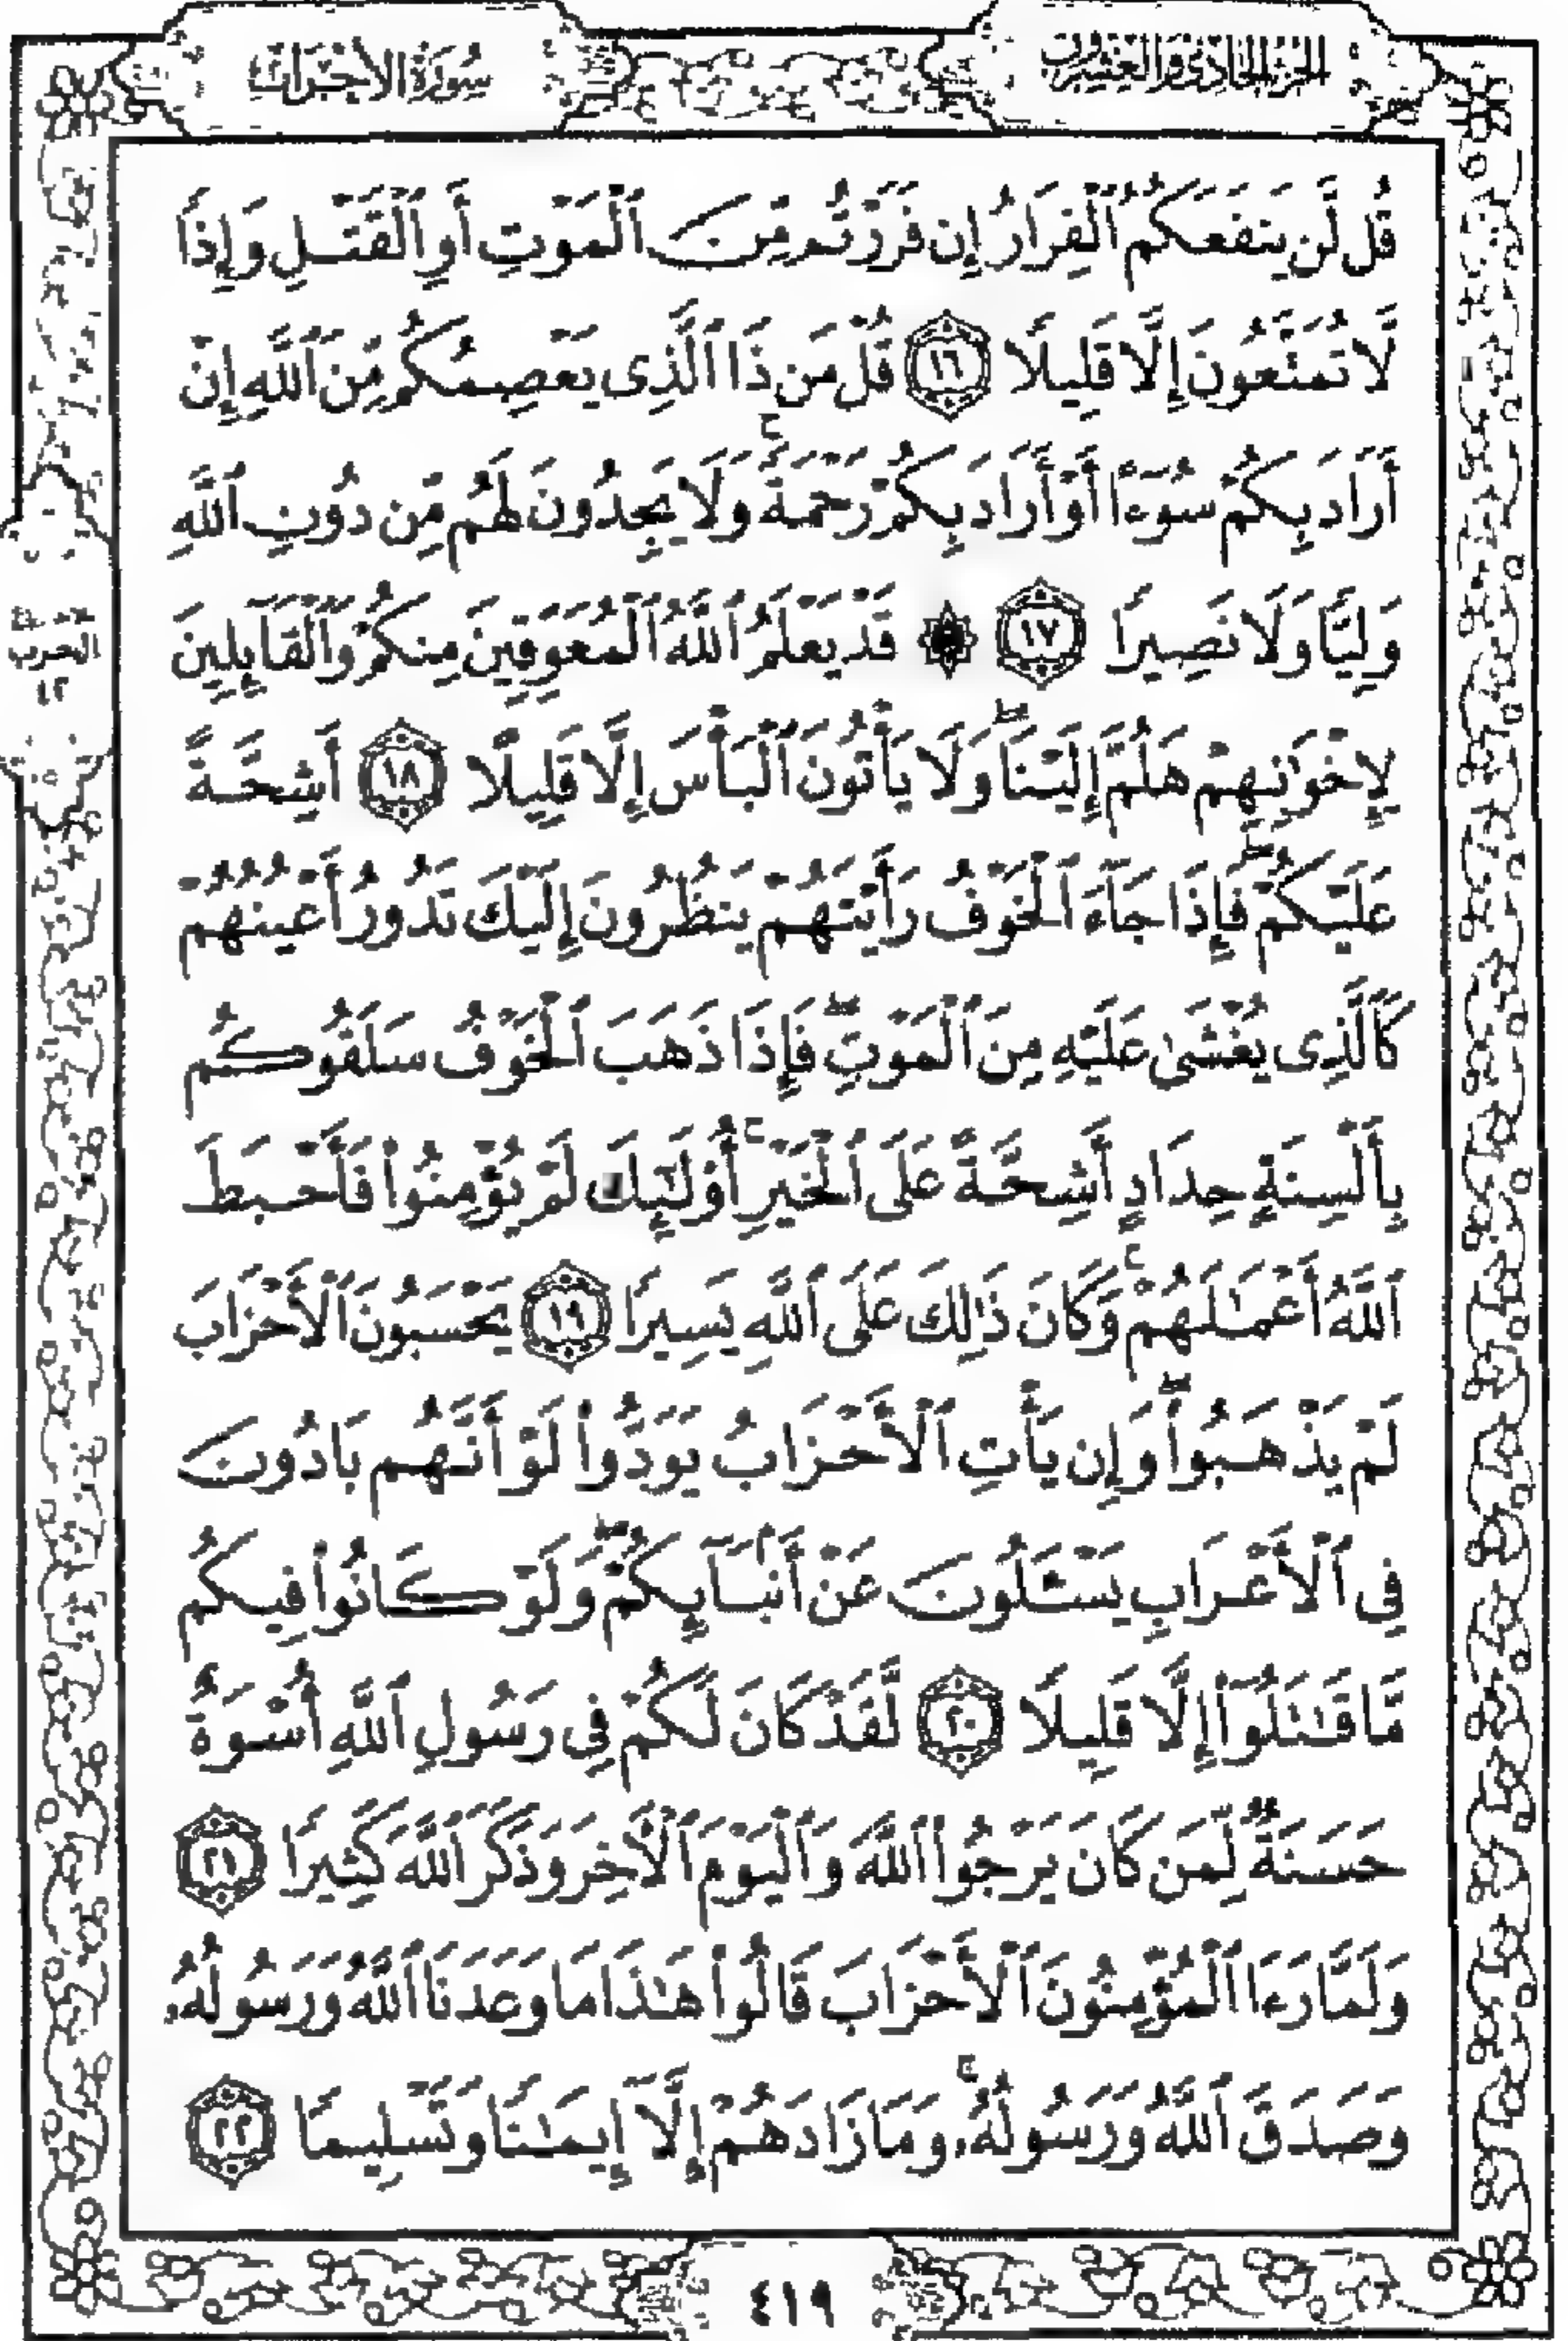 الجزء الحادي والعشرون
سُورَةُ الأَحْزَابِ
قُل لَّن يَنفَعَكُمُ ٱلْفِرَارُ إِن فَرَرْتُم مِّنَ ٱلْمَوْتِ أَوِ ٱلْقَتْلِ وَإِذًا
لَّا تُمَتَّعُونَ إِلَّا قَلِيلًا ١٦ قُلْ مَن ذَا ٱلَّذِى يَعْصِمُكُم مِّنَ ٱللَّهِ إِنْ
أَرَادَ بِكُمْ سُوٓءًا أَوْ أَرَادَ بِكُمْ رَحْمَةً ۚ وَلَا يَجِدُونَ لَهُم مِّن دُونِ ٱللَّهِ
وَلِيًّا وَلَا نَصِيرًا ١٧ ۞ قَدْ يَعْلَمُ ٱللَّهُ ٱلْمُعَوِّقِينَ مِنكُمْ وَٱلْقَآئِلِينَ
لِإِخْوَٰنِهِمْ هَلُمَّ إِلَيْنَا ۖ وَلَا يَأْتُونَ ٱلْبَأْسَ إِلَّا قَلِيلًا ١٨ أَشِحَّةً
عَلَيْكُمْ ۖ فَإِذَا جَآءَ ٱلْخَوْفُ رَأَيْتَهُمْ يَنظُرُونَ إِلَيْكَ تَدُورُ أَعْيُنُهُمْ
كَٱلَّذِى يُغْشَىٰ عَلَيْهِ مِنَ ٱلْمَوْتِ ۖ فَإِذَا ذَهَبَ ٱلْخَوْفُ سَلَقُوكُم
بِأَلْسِنَةٍ حِدَادٍ أَشِحَّةً عَلَى ٱلْخَيْرِ ۚ أُو۟لَٰٓئِكَ لَمْ يُؤْمِنُوا۟ فَأَحْبَطَ
ٱللَّهُ أَعْمَٰلَهُمْ ۚ وَكَانَ ذَٰلِكَ عَلَى ٱللَّهِ يَسِيرًا ١٩ يَحْسَبُونَ ٱلْأَحْزَابَ
لَمْ يَذْهَبُوا۟ ۖ وَإِن يَأْتِ ٱلْأَحْزَابُ يَوَدُّوا۟ لَوْ أَنَّهُم بَادُونَ
فِى ٱلْأَعْرَابِ يَسْـَٔلُونَ عَنْ أَنۢبَآئِكُمْ ۖ وَلَوْ كَانُوا۟ فِيكُم
مَّا قَٰتَلُوٓا۟ إِلَّا قَلِيلًا ٢٠ لَّقَدْ كَانَ لَكُمْ فِى رَسُولِ ٱللَّهِ أُسْوَةٌ
حَسَنَةٌ لِّمَن كَانَ يَرْجُوا۟ ٱللَّهَ وَٱلْيَوْمَ ٱلْءَاخِرَ وَذَكَرَ ٱللَّهَ كَثِيرًا ٢١
وَلَمَّا رَءَا ٱلْمُؤْمِنُونَ ٱلْأَحْزَابَ قَالُوا۟ هَٰذَا مَا وَعَدَنَا ٱللَّهُ وَرَسُولُهُۥ
وَصَدَقَ ٱللَّهُ وَرَسُولُهُۥ ۚ وَمَا زَادَهُمْ إِلَّآ إِيمَٰنًا وَتَسْلِيمًا ٢٢
الحزب
٤٢
٤١٩